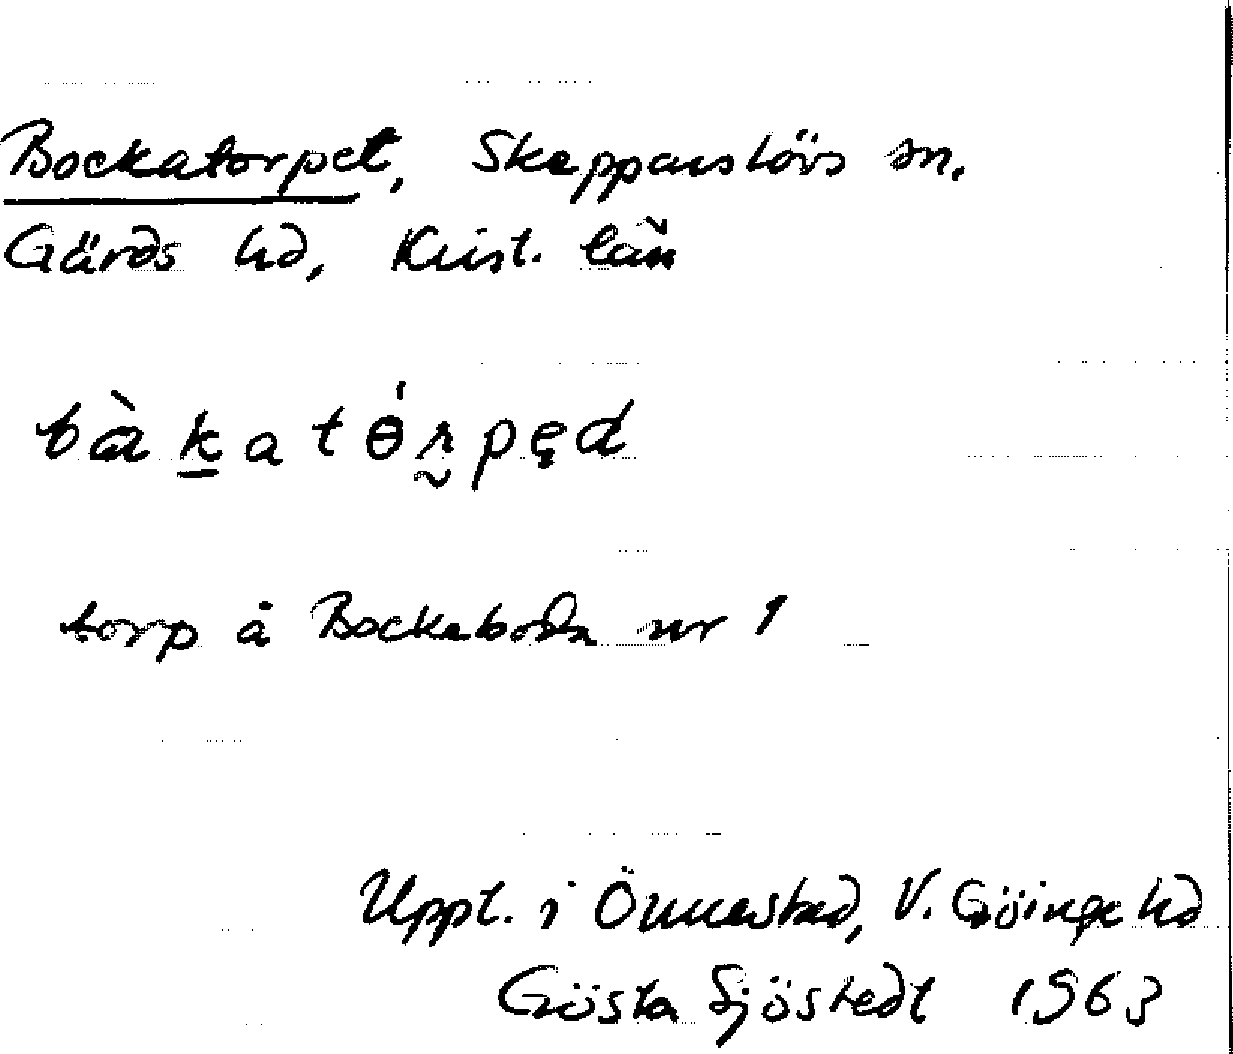 Bockatorpet, Skepparslövs sn.
Gärds hd, Krist. län
torp å Bockeboda nr 1
Uppt. i Önnestad, V. Göinge hd
Gösta Sjöstedt 1963